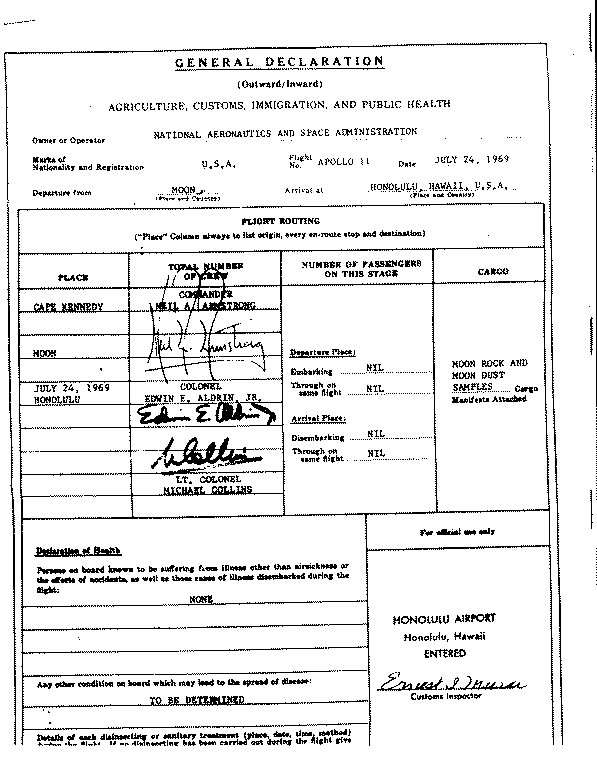 GENERAL DECLARATION
(Outward/Inward)
AGRICULTURE, CUSTOMS, IMMIGRATION, AND PUBLIC HEALTH
Owner or Operator NATIONAL AERONAUTICS AND SPACE ADMINISTRATION
Marks of
Nationality and Registration U.S.A. Flight No. APOLLO 11 Date JULY 24, 1969
Departure from MOON Arrival at HONOLULU, HAWAII, U.S.A.
(Place and Country) (Place and Country)
FLIGHT ROUTING
("Place" Column always to list origin, every en-route stop and destination)
PLACE
TOTAL NUMBER
OF CREW
NUMBER OF PASSENGERS
ON THIS STAGE
CARGO
CAPE KENNEDY
MOON
JULY 24, 1969
HONOLULU
COMMANDER
NEIL A. ARMSTRONG
Neil A. Armstrong
COLONEL
EDWIN E. ALDRIN, JR.
Edwin E. Aldrin Jr
M Collins
LT. COLONEL
MICHAEL COLLINS
Departure Place:
Embarking NIL
Through on
same flight NIL
Arrival Place:
Disembarking NIL
Through on
same flight NIL
MOON ROCK AND
MOON DUST
SAMPLES Cargo
Manifests Attached
Declaration of Health
Persons on board known to be suffering from illness other than airsickness or
the effects of accidents, as well as those cases of illness disembarked during the
flight:
NONE
Any other condition on board which may lead to the spread of disease:
TO BE DETERMINED
Details of each disinsecting or sanitary treatment (place, date, time, method)
during the flight. If no disinsecting has been carried out during the flight give
For official use only
HONOLULU AIRPORT
Honolulu, Hawaii
ENTERED
Ernest I. Murai
Customs Inspector